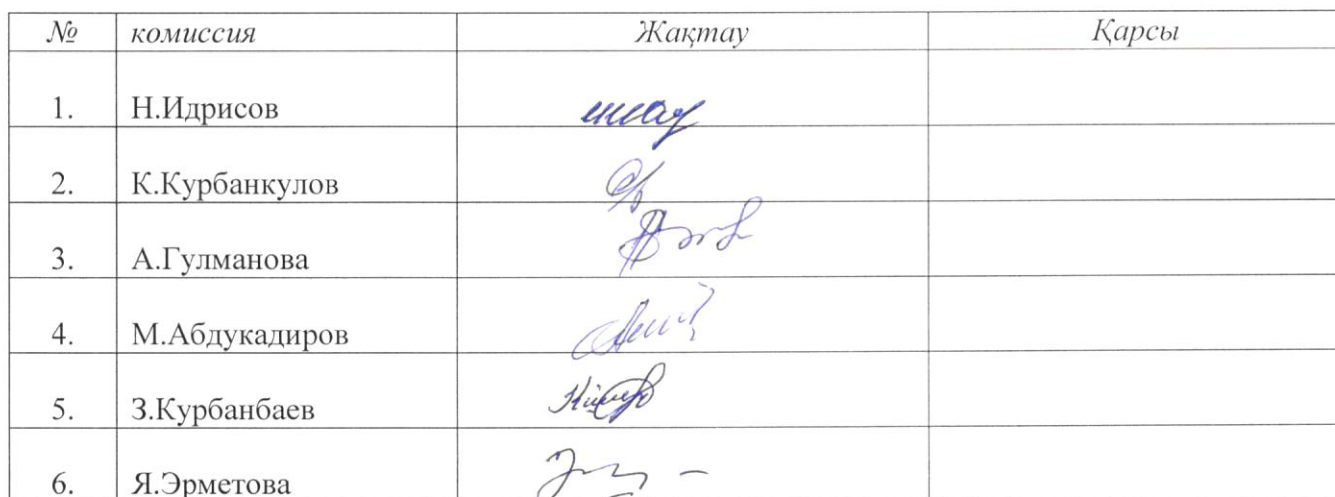 № комиссия Жақтау Қарсы
1. Н.Идрисов
2. К.Курбанкулов
3. А.Гулманова
4. М.Абдукадиров
5. З.Курбанбаев
6. Я.Эрметова